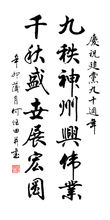 慶祝建黨九十週年
九秩神州興偉業
千秋盛世展宏圖
辛卯 月何 田 書